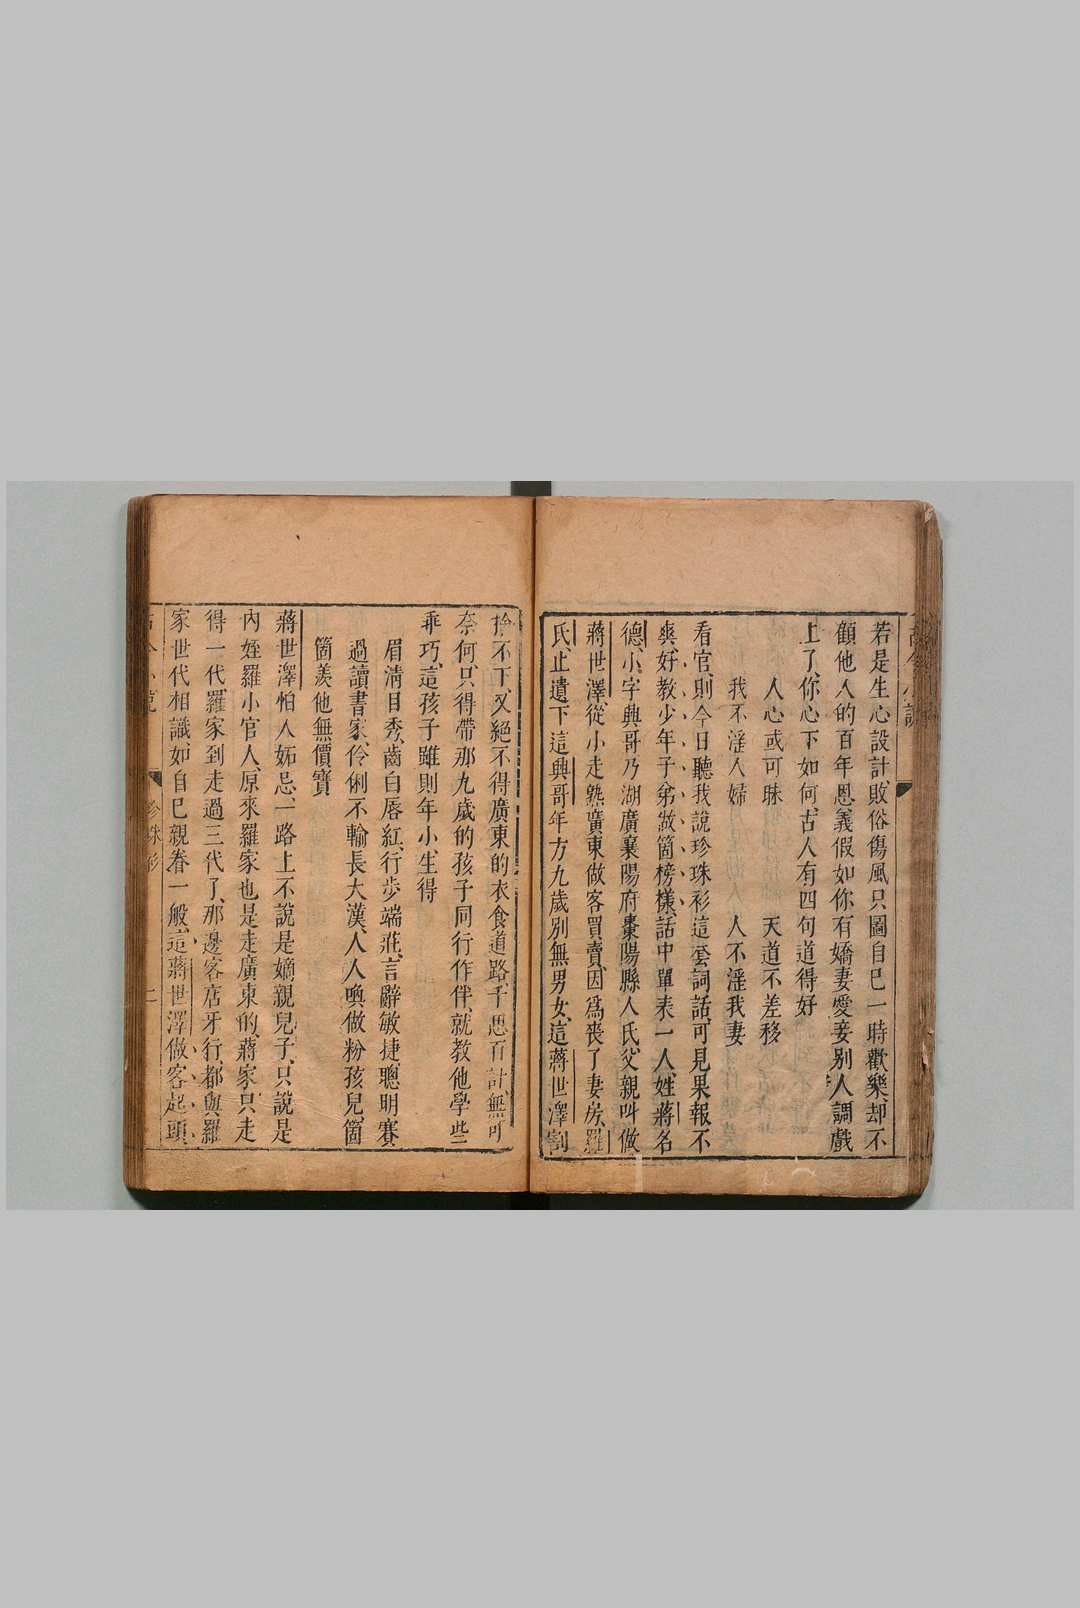 若是生心設計敗俗傷風只圖自己一時歡樂却不
顧他人的百年恩義假如你有嬌妻愛妾別人調戲
上了你心下如何古人有四句道得好
人心或可昧 天道不差移
我不淫人婦 人不淫我妻
看官則今日聽我說珍珠衫這套詞話可見果報不
爽好教少年子弟做箇榜樣話中單表一人姓蔣名
德小字興哥乃湖廣襄陽府棗陽縣人氏父親叫做
蔣世澤從小走熟廣東做客買賣因爲喪了妻房羅
氏止遺下這興哥年方九歲別無男女這蔣世澤割
捨不下又絕不得廣東的衣食道路千思百計無可
奈何只得帶那九歲的孩子同行作伴就教他學些
乖巧這孩子雖則年小生得
眉清目秀齒白唇紅行步端莊言辭敏捷聰明賽
過讀書家伶俐不輸長大漢人人喚做粉孩兒箇
箇羨他無價寶
蔣世澤怕人妬忌一路上不說是嫡親兒子只說是
內姪羅小官人原來羅家也是走廣東的蔣家只走
得一代羅家到走過三代了那邊客店牙行都與羅
家世代相識如自己親眷一般這蔣世澤做客起頭
珍珠衫 二